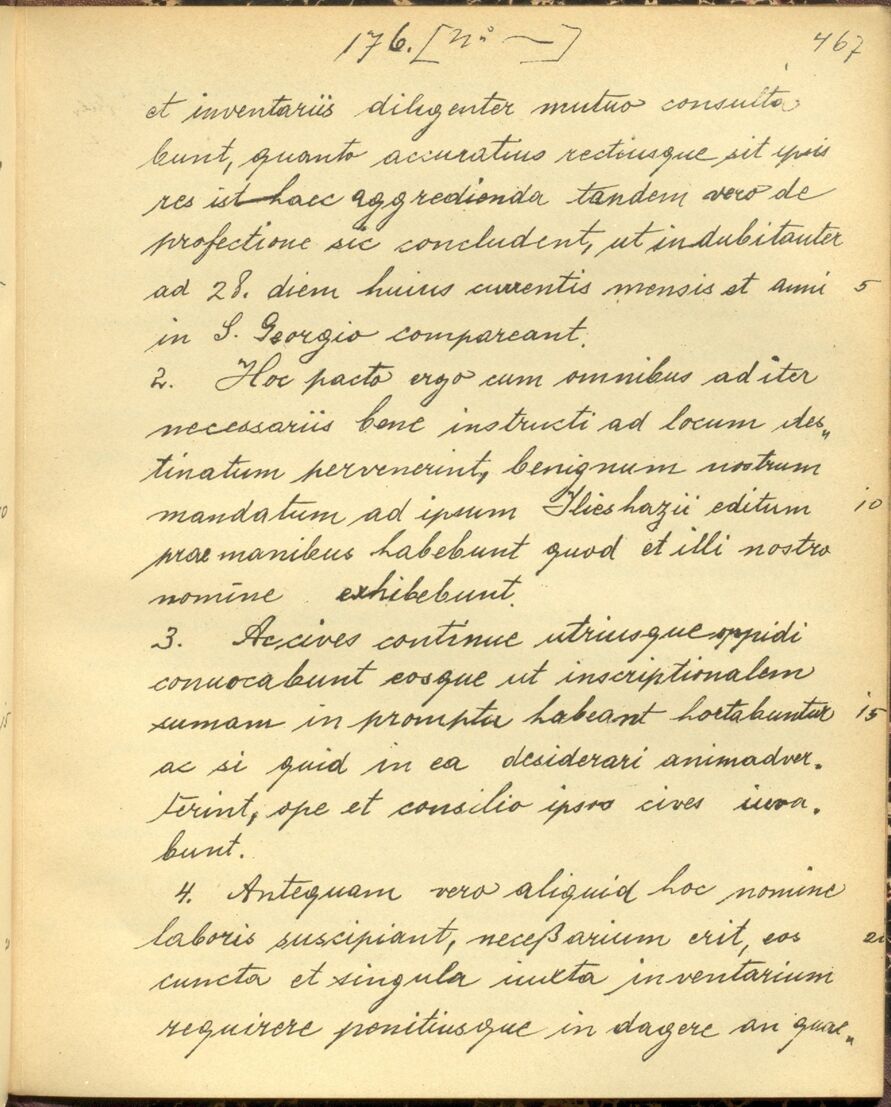 176. [No —] 467
et inventariis diligenter mutuo consulta
bunt, quanto accuratius rectiusque sit ipsis
res ist haec aggredienda tandem vero de
profectione sic concludent, ut indubitanter
ad 28. diem huius currentis mensis et anni 5
in S. Georgio compareant.
2. Hoc pacto ergo cum omnibus ad iter
necessariis bene instructi ad locum des„
tinatum pervenerint, benignum nostrum
mandatum ad ipsum Ilieshazii editum 10
prae manibus habebunt quod et illi nostro
nomine exhibebunt.
3. Ac cives continue utriusque oppidi
conuocabunt eosque ut inscriptionalem
sumam in promptu habeant hortabuntur 15
ac si quid in ea desiderari animadver.
terint, ope et consilio ipsos cives iuva.
bunt.
4. Antequam vero aliquid hoc nomine
laboris suscipiant, neceßarium erit, eos 20
cuncta et singula iuxta inventarium
requirere penitiusque in dagere an quae„